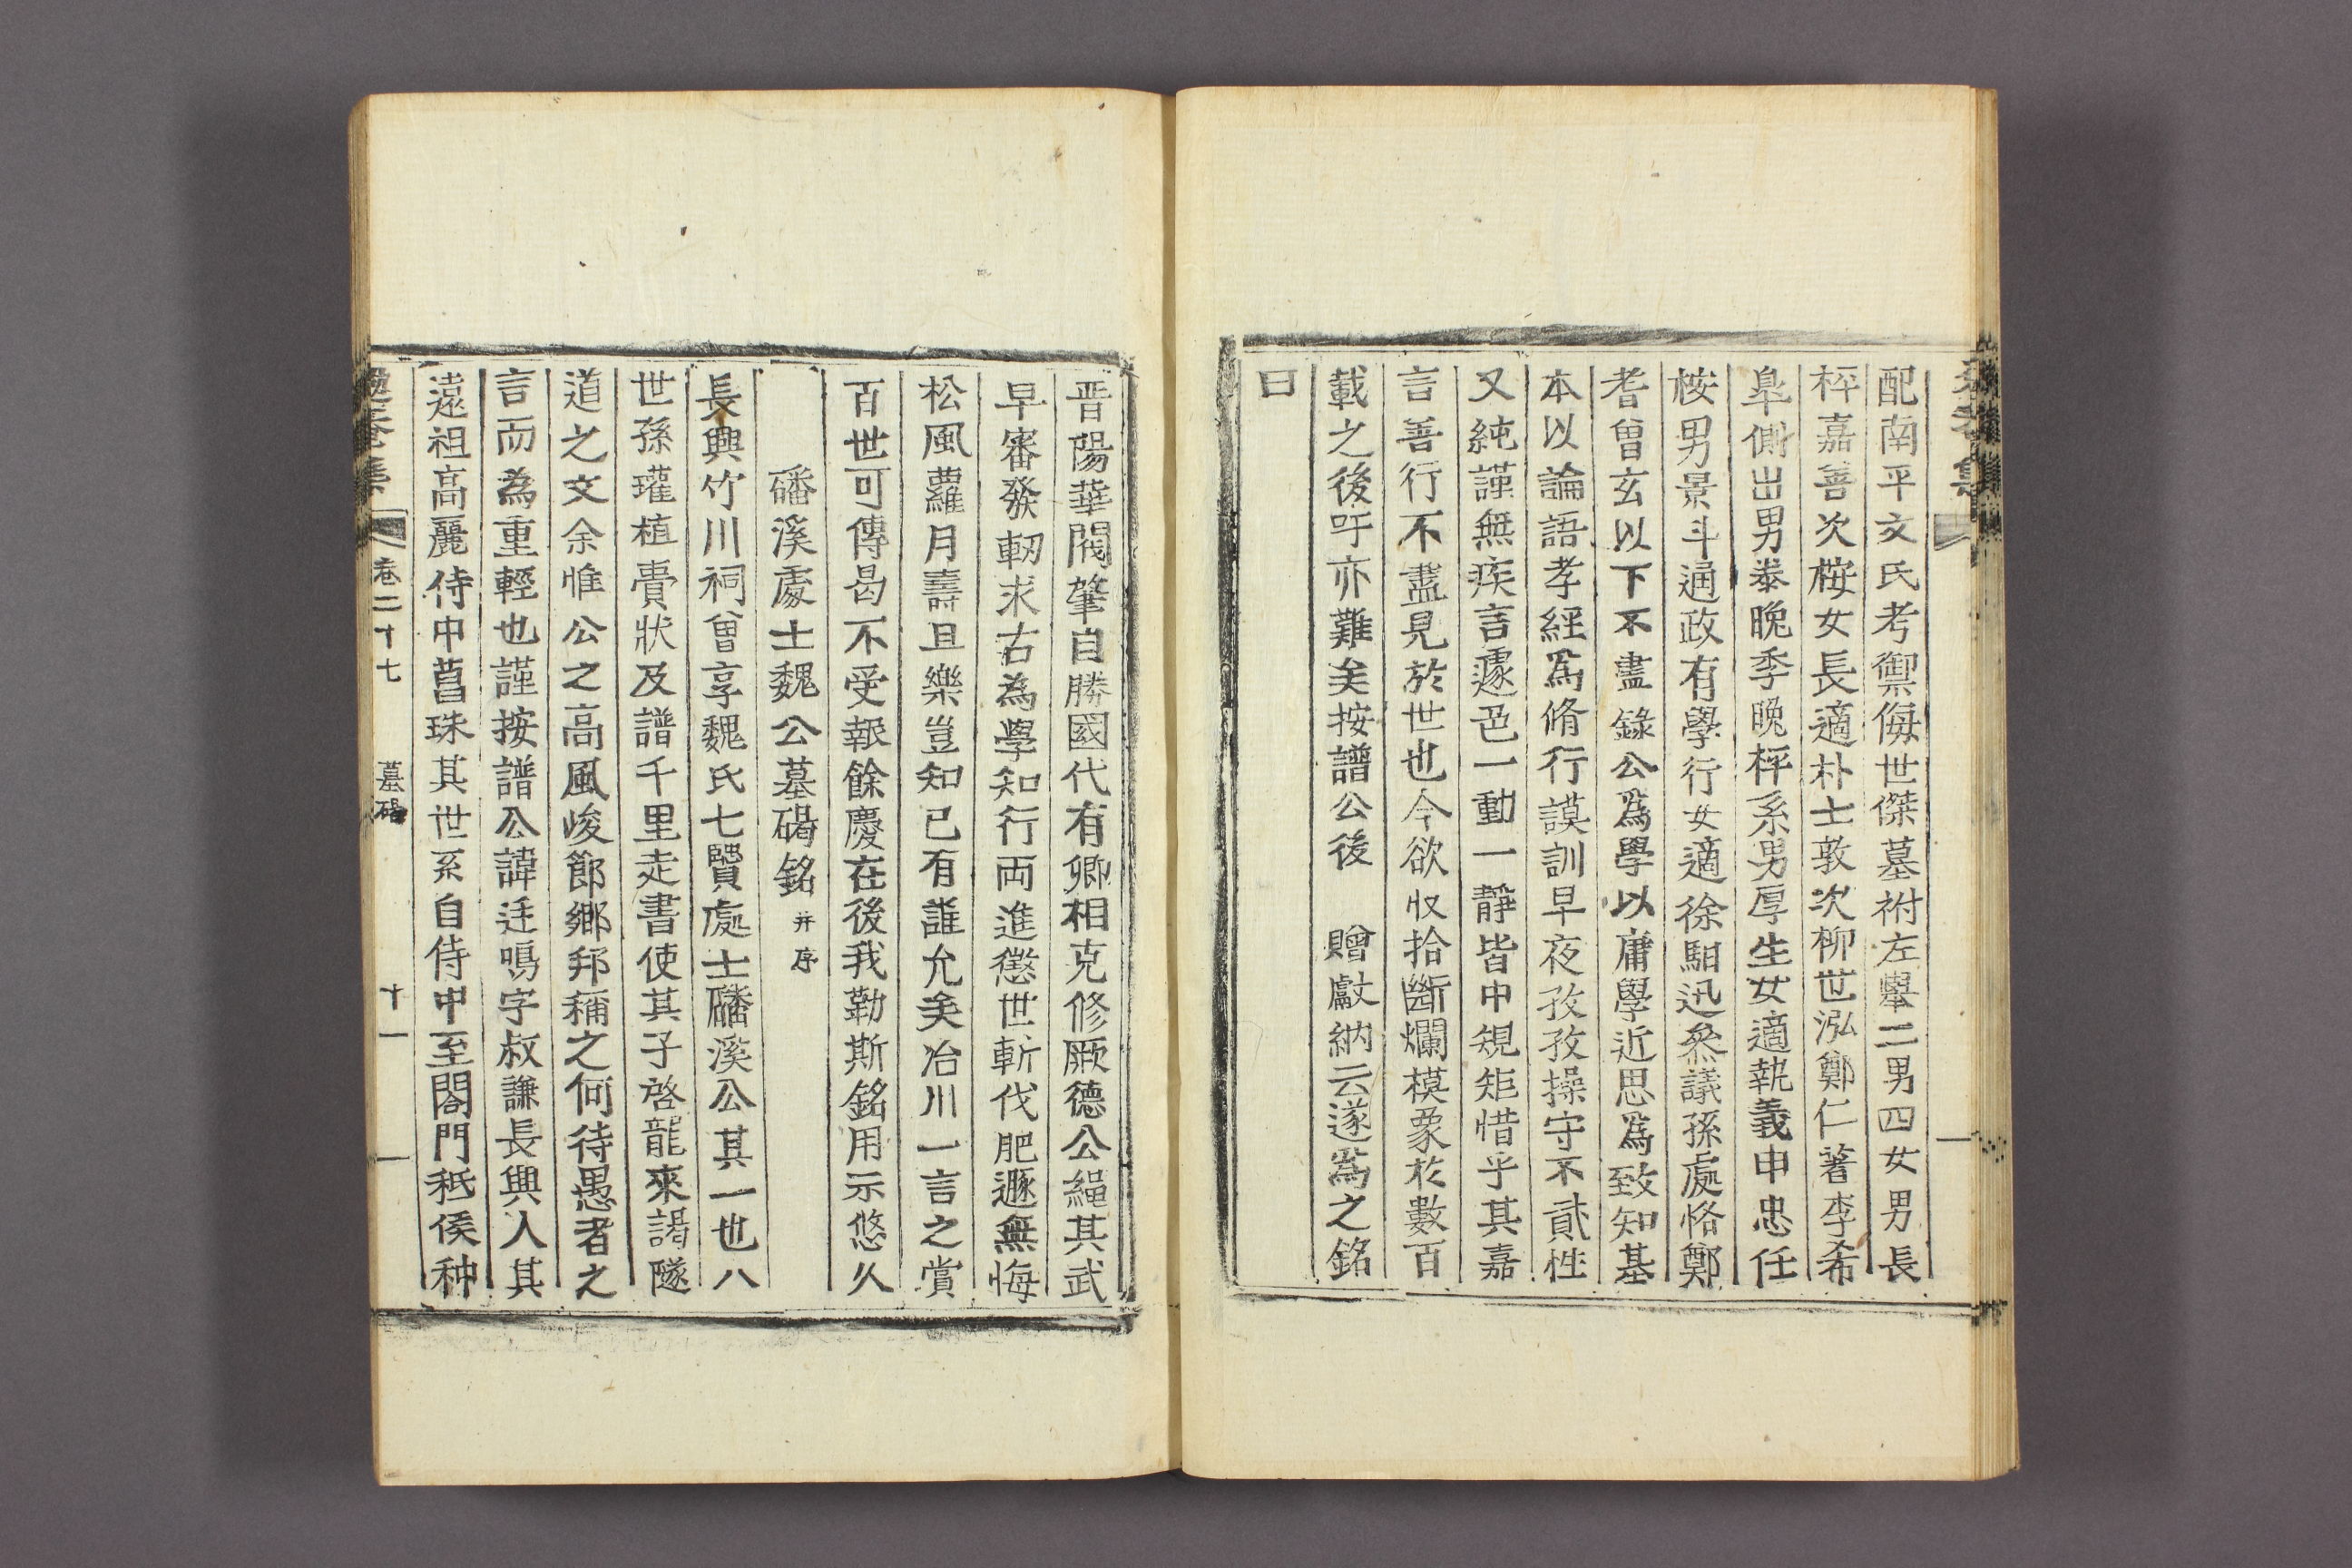 配南平文氏考禦侮世傑墓祔左舉二男四女男長
枰嘉善次桉女長適朴士敦次柳世泓鄭仁著李希
皐側出男㤗晚季晚枰系男厚生女適執義申忠任
桉男景斗通政有學行女適徐馹迅叅議孫處恪鄭
耆曾玄以下不盡錄公爲學以庸學近思爲致知基
本以論語孝經爲脩行謨訓早夜孜孜操守不貳性
又純謹無疾言遽色一動一靜皆中規矩惜乎其嘉
言善行不盡見於世也今欲收拾斷爛模象於數百
載之後吁亦難矣按譜公後 贈獻納云遂爲之銘
曰
晋陽華閥肇自勝國代有卿相克修厥德公繩其武
早審發軔求古為學知行両進懲世斬伐肥遯無悔
松風蘿月壽且樂豈知已有誰允矣冶川一言之賞
百世可傳曷不受報餘慶在後我勒斯銘用示悠久
磻溪處士魏公墓碣銘 并序
長興竹川祠曾享魏氏七賢處士磻溪公其一也八
世孫瓘植賷狀及譜千里走書使其子啓龍來謁隧
道之文余惟公之高風峻節鄉邦稱之何待愚者之
言而為重輕也謹按譜公諱廷鳴字叔謙長興人其
遠祖高麗侍中菖珠其世系自侍中至閤門祗侯种
集 卷二十七 墓碣 十一